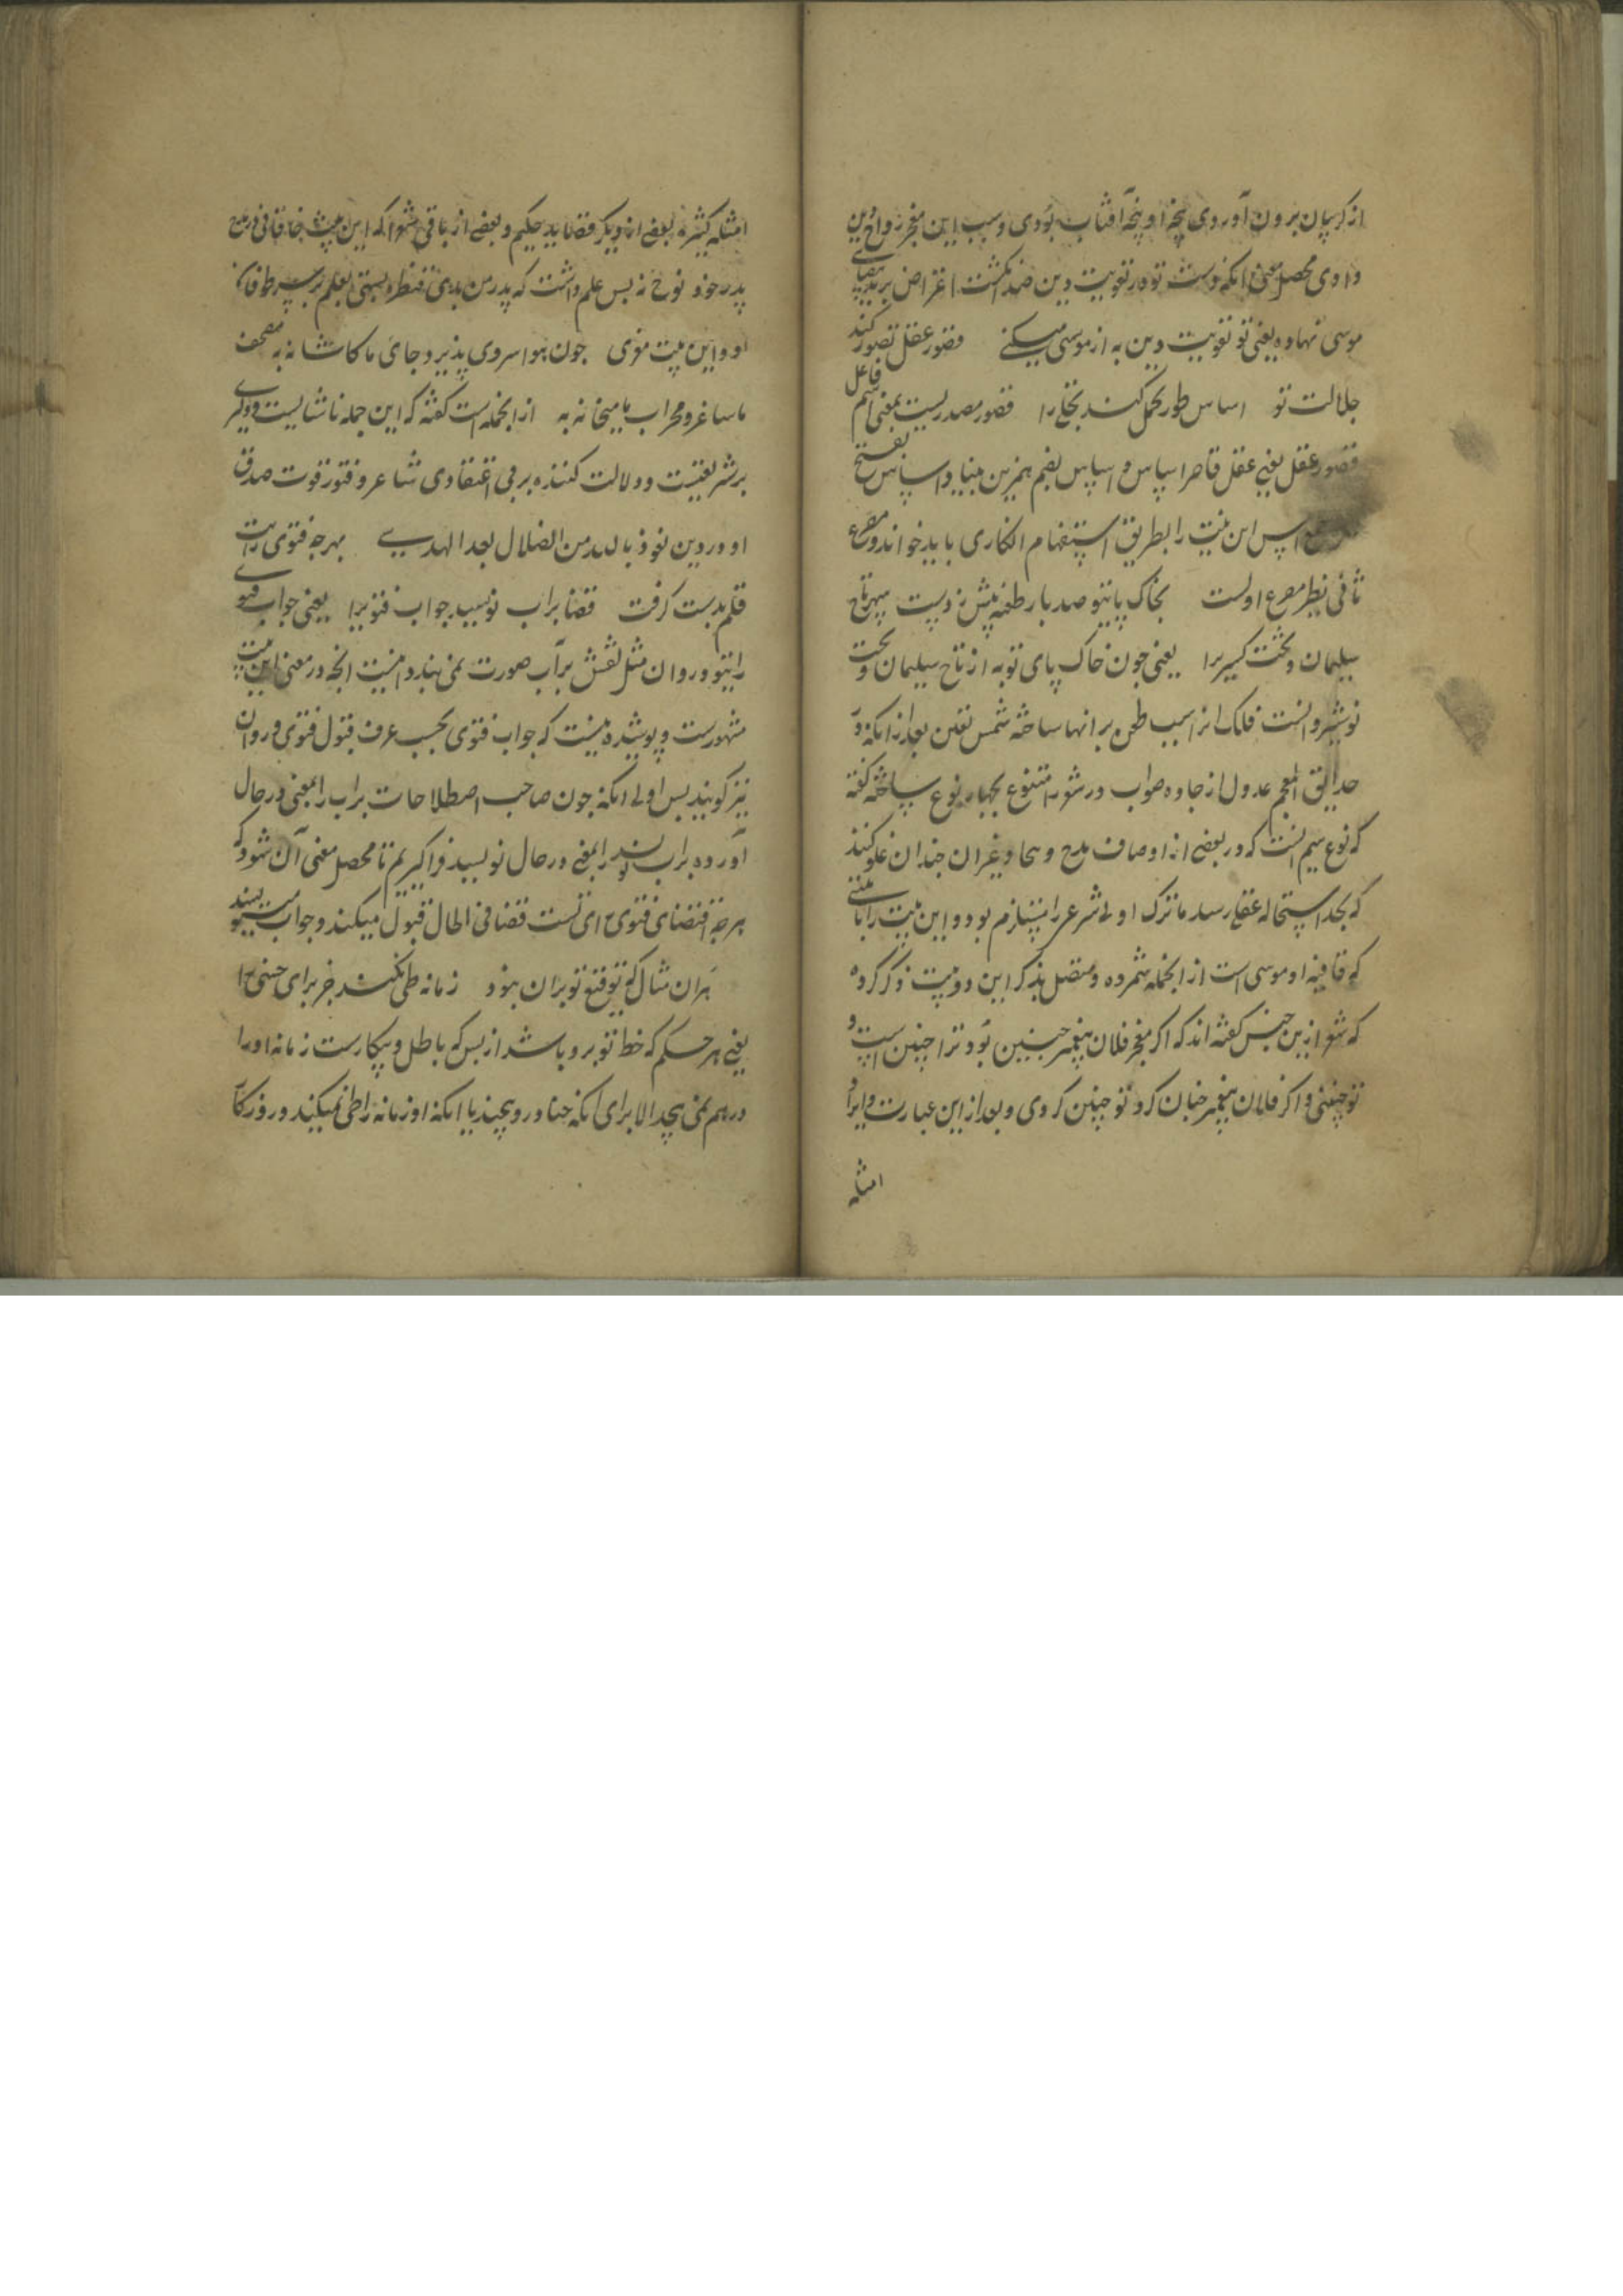 از کریبان برون آوردی پنجه او پنجه آفتاب بودی و سبب این معجز رواج دین
دادی محصل معنی انکه دست تو در تقویت دین صد انکشت اعتراض بر ید بیضای
موسی نهاده یعنی تو تقویت دین به از موسی میکنی قصور عقل تصور کند
جلالت تو اساس طور تحمل کند تجلی را قصور مصدریست بمعنی اسم فاعل
قصور عقل یعنی عقل قاصر اساس و اساس بضم همزه بن بنا و اساس بفتح
پس این بیت را بطریق استفهام انکاری باید خواند و مصرع
ثانی نظیر مصرع اولست بخاک پایتو صد بار طعنه پیش زدست سپهر تاج
سلیمان و تخت کسری را یعنی چون خاک پای تو به از تاج سلیمان و تخت
نوشیروانست فلک از اسب طعن بر انها ساخته شمس بعد از انکه در
حدایق المعجم عدول از جاده صواب در شعر متنوع بچهار نوع ساخته کفته
که نوع سیم انست که در بعضی از اوصاف مدح و هجا و غیر ان چندان غلو کنند
که بحد استحاله عقلی رسد یا ترک اولی شرعی را مستلزم بود و این بیت را با بیتی
که قافیه او موسی است از انجمله شمرده و متصل بذکر این دو بیت ذکر کرده
که شعرا ازین جنس کفته اند که اکر معجز فلان پیغمبر چنین بود ترا چنین است و
تو چنینی و اکر فلان پیغمبر چنان کرد تو چنین کردی و بعد از این عبارت و ایراد
امثله
امثله کثیره بعضی از دیکر قصاید حکیم و بعضی از باقی شعرا که این بیت خاقانی در مدح
پدر خود نوح نه بس علم داشت که پدر من بدی قنطره بستی بعلم بر سر طوفان
او و این بیت معزی چون هوا سردی پذیرد جای ما کاشانه به مصحف
ما ساغر و محراب ما میخانه به از انجمله است کفته که این جمله ناشایست و دلیری
بر شریعتست و دلالت کننده بر بی اعتقادی شاعر و فتور قوت صدق
او در دین نعوذ بالله من الضلال بعد الهدی بهرچه فتوی رایت
قلم بدست کرفت قضا بر آب نویسد جواب فتوی را یعنی جواب فتوی
رایتو روان مثل نقش بر آب صورت نمی بندد اینست انچه در معنی این بیت
مشهورست و پوشیده نیست که جواب فتوی بحسب عرف قبول فتوی و روان
نیز کویند پس اولی انکه چون صاحب اصطلاحات بر آب را بمعنی در حال
آورده بر آب نویسد را بمعنی در حال نویسد فرا کیریم تا محصل معنی آن شود که
هرچه اقتضای فتوی رای تست قضا فی الحال قبول میکند و جواب مینویسد
بر ان مثال که توقیع تو بران نبود زمانه طی نکند جز برای حنی را
یعنی هر حکم که خط تو برو باشد از بس که باطل و بیکارست زمانه او را
درهم نمی پیچد الا برای انکه حنا درو پیچند یا انکه او زمانه را طی نمیکند و روزکار